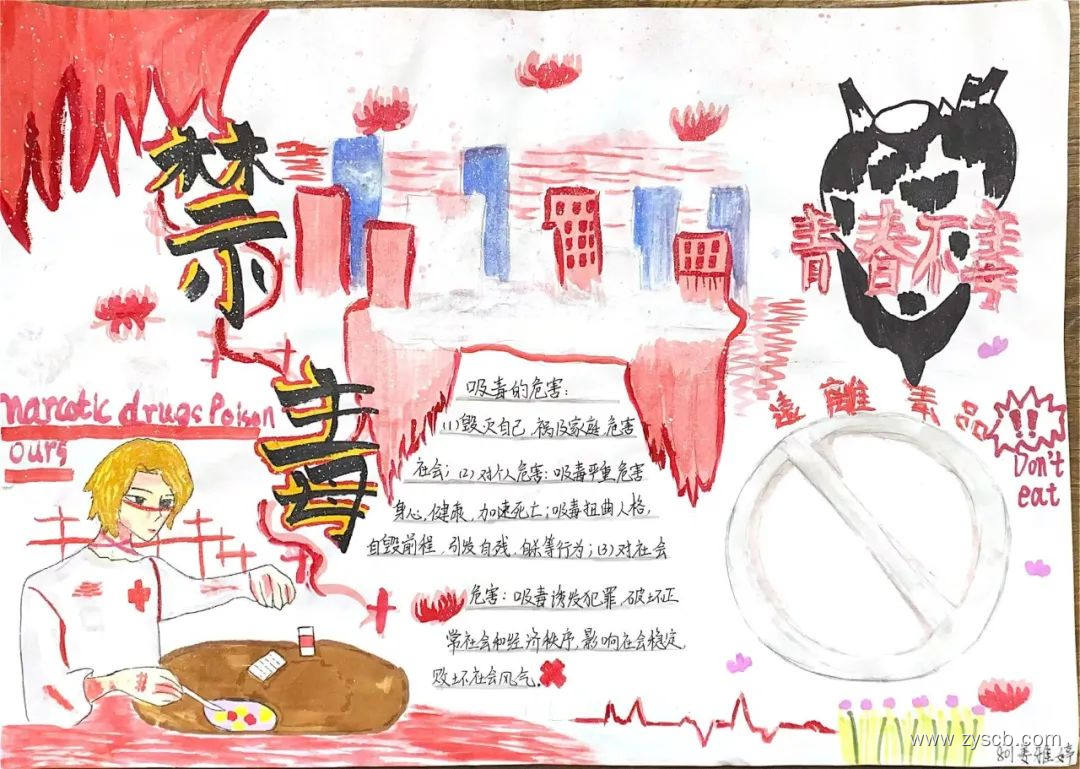 禁毒
青春不毒
遠離毒品
!!
Don't
eat
narcotic drugs Poison
ours
吸毒的危害:
(1)毁灭自己,祸及家庭,危害
社会;(2)对个人危害:吸毒严重危害
身心,健康,加速死亡;吸毒扭曲人格,
自毁前程,引发自残、自杀等行为;(3)对社会
危害:吸毒诱发犯罪,破坏正
常社会和经济秩序,影响社会稳定,
败坏社会风气.
www.zyscb.com
雅婷